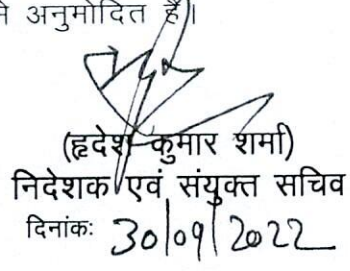 से अनुमोदित हैं।
(हृदेश कुमार शर्मा)
निदेशक एवं संयुक्त सचिव
दिनांकः 30/09/2022